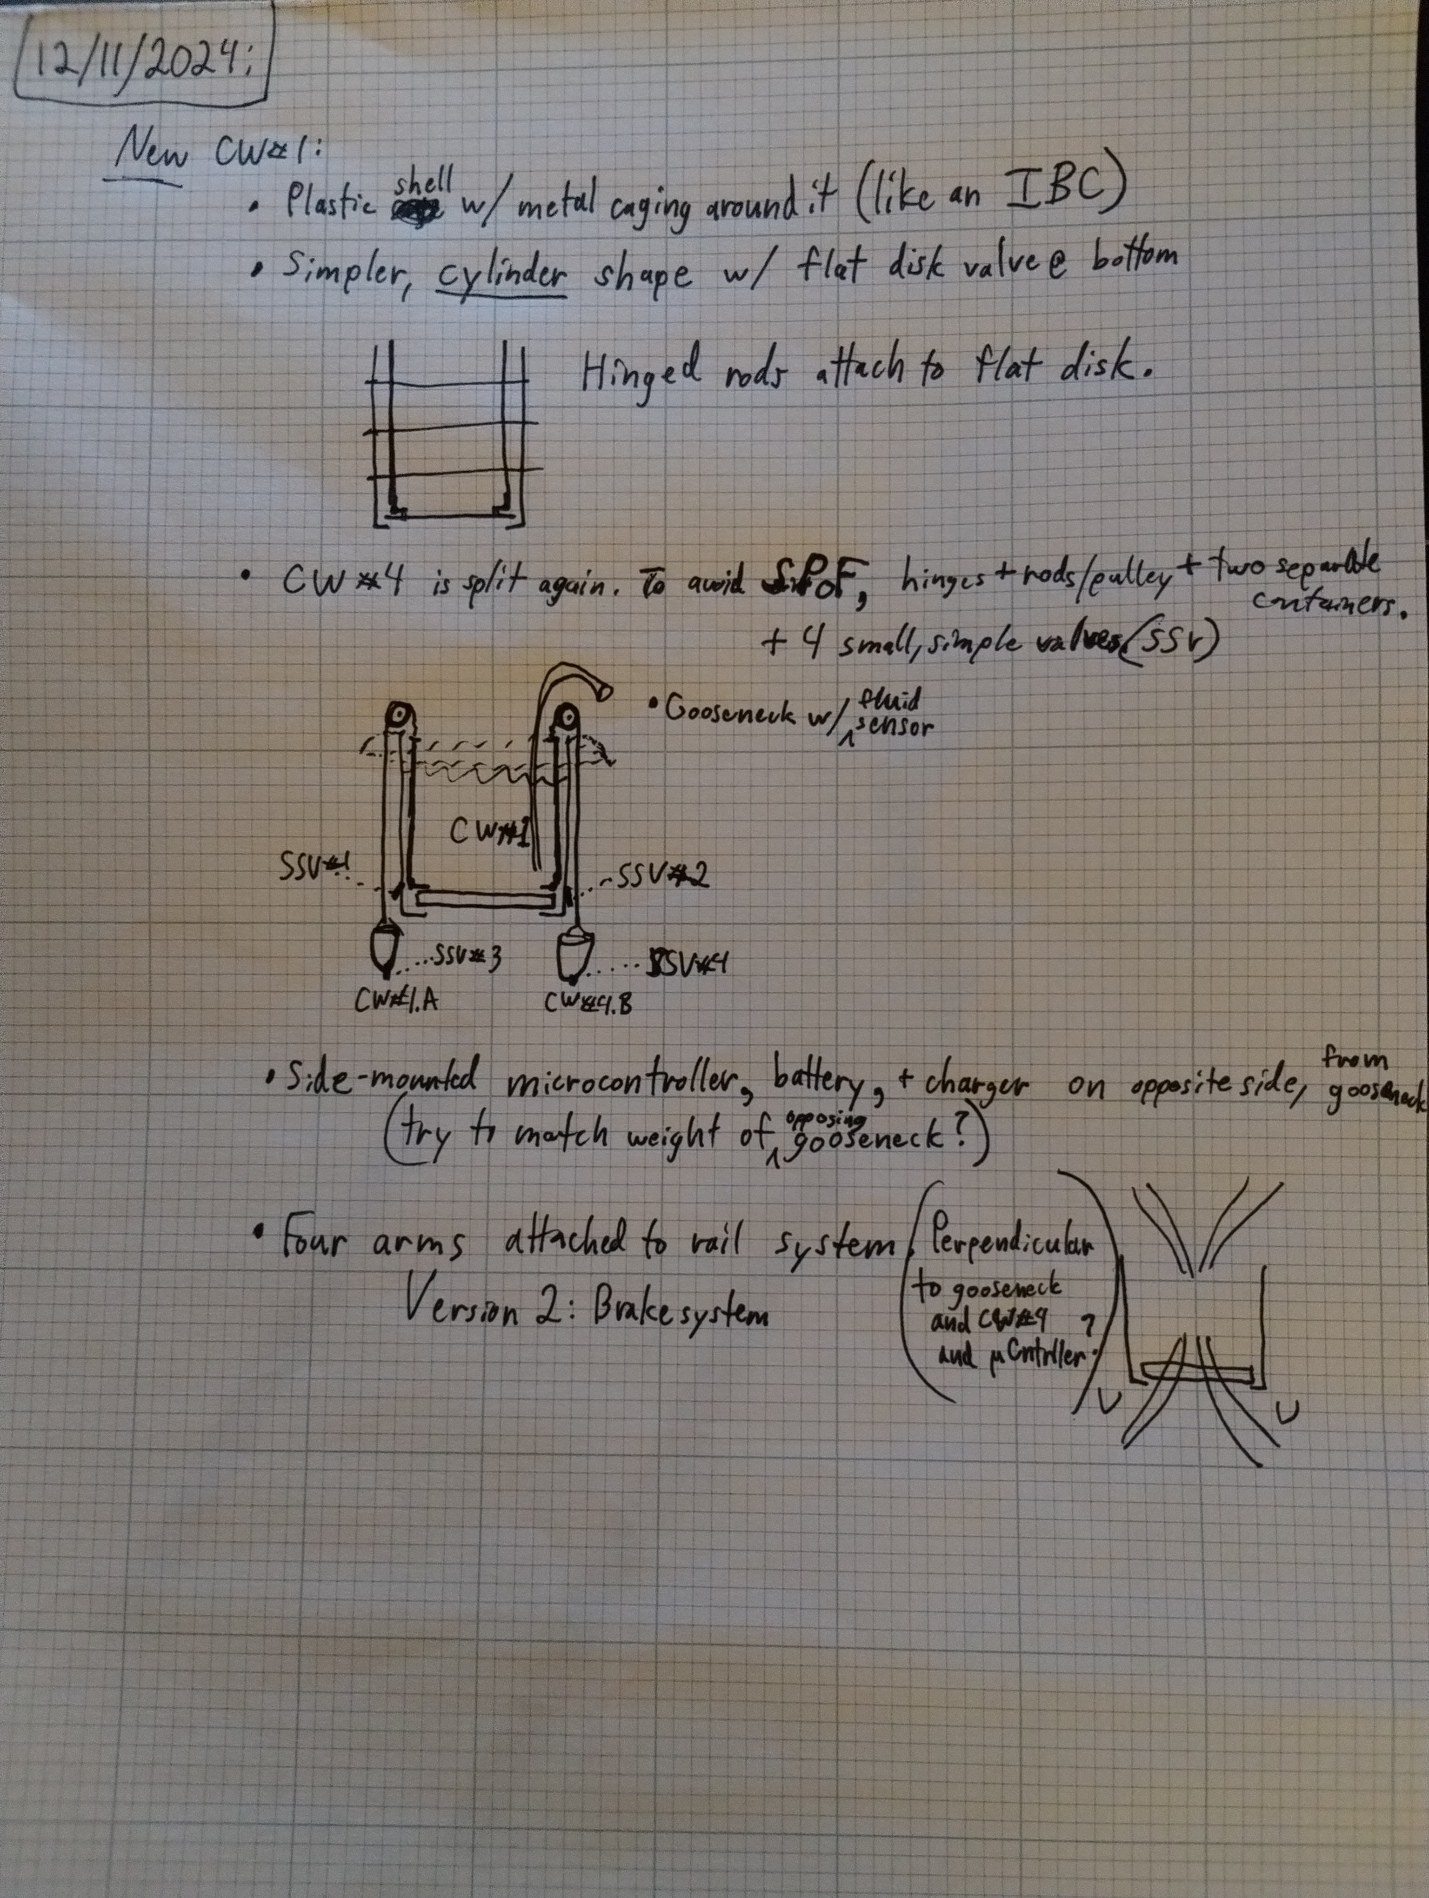 12/11/2024:
New CW#1:
• Plastic shell w/ metal caging around it (like an IBC)
• Simpler, cylinder shape w/ flat disk valve @ bottom
Hinged rods attach to flat disk.
• CW#4 is split again. To avoid SPoF, hinges + rods/pulley + two separable containers.
+ 4 small, simple valves (SSV)
• Gooseneck w/ fluid sensor
CW#1
SSV#1
SSV#2
SSV#3
SSV#4
CW#4.A
CW#4.B
• Side-mounted microcontroller, battery, + charger on opposite side, from gooseneck
(try to match weight of opposing gooseneck?)
• Four arms attached to rail system
(Perpendicular
to gooseneck
and CW#4
and μCntrller?)
Version 2: Brake system
U
U